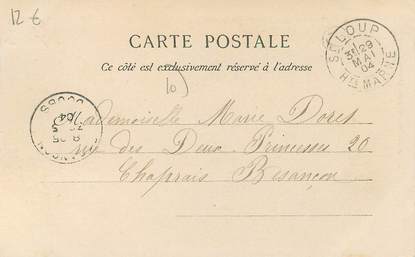 12 €
CARTE POSTALE
Ce côté est exclusivement réservé à l'adresse
ST LOUP
29
MAI
04
HTE MARNE
10
Mademoiselle Marie Doret
rue des Deux Princesses 20
Chaprais Besançon
BESANCON
DOUBS
04